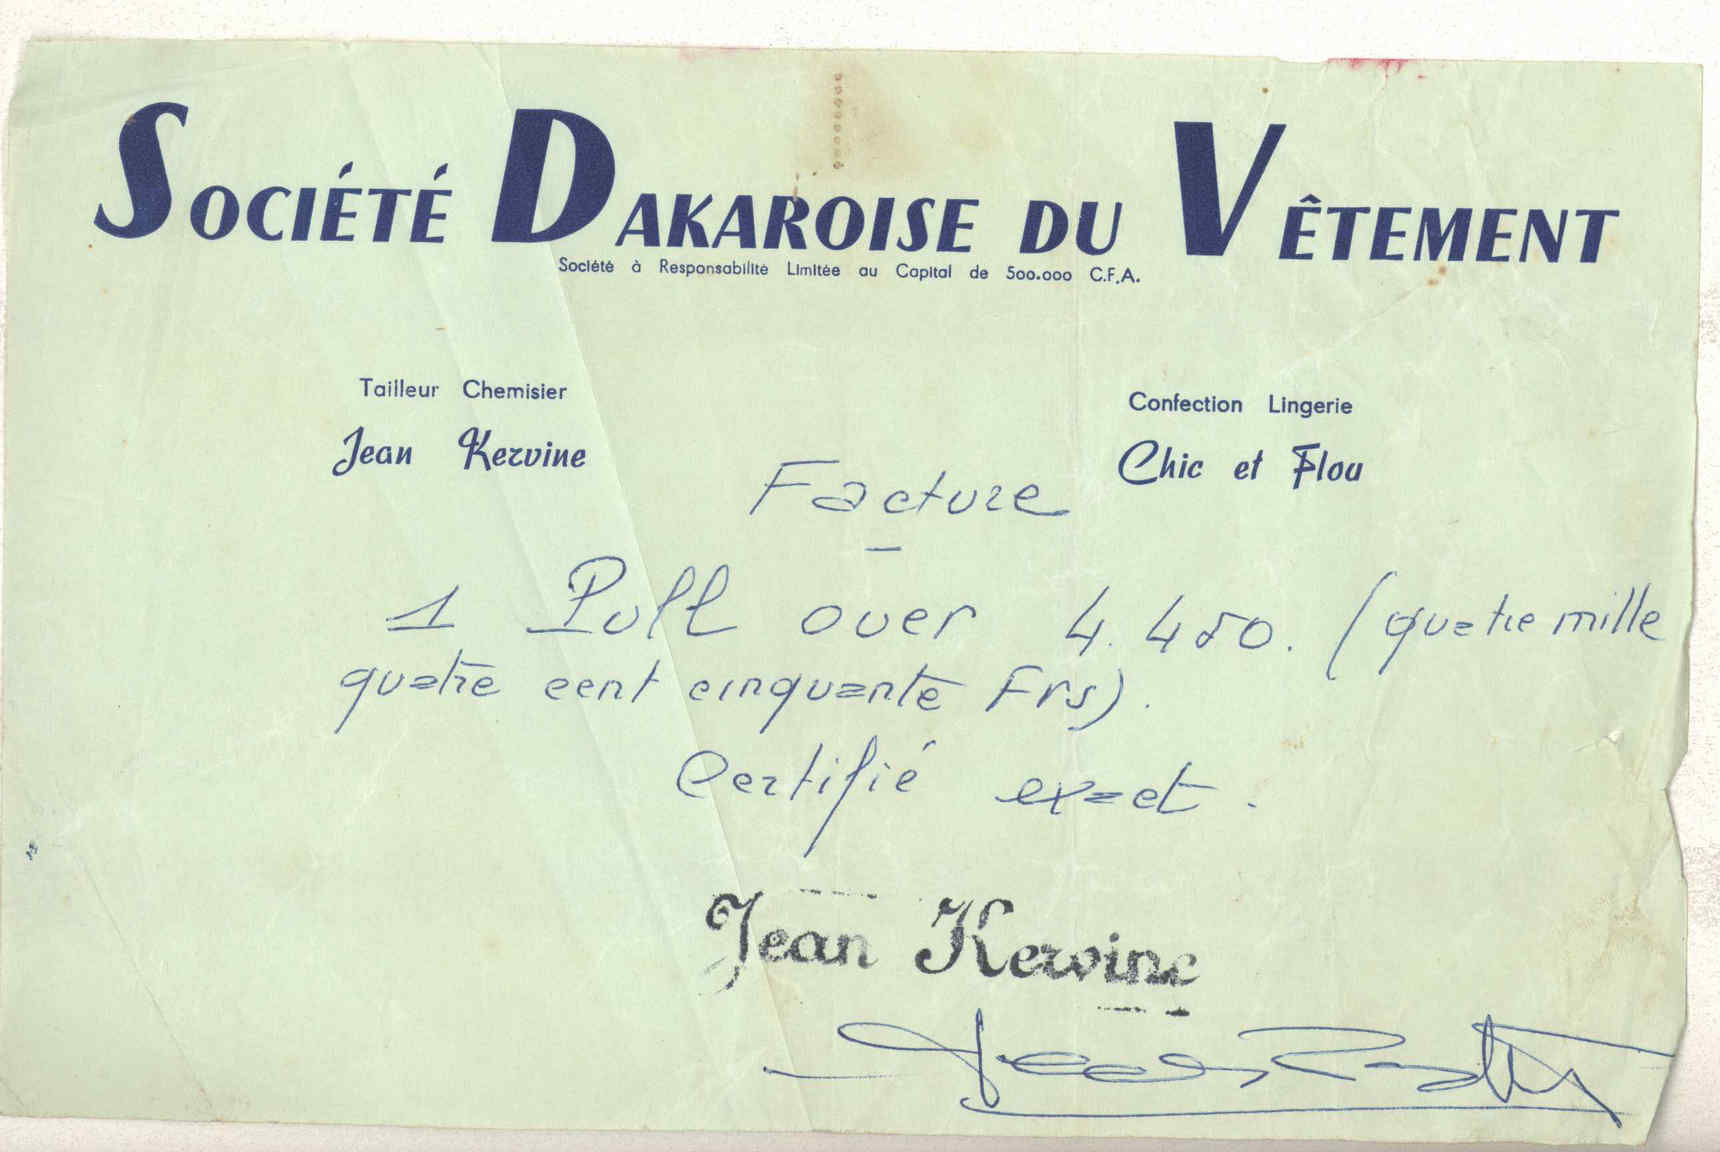 SOCIÉTÉ DAKAROISE DU VÊTEMENT
Société à Responsabilité Limitée au Capital de 500.000 C.F.A.
Tailleur Chemisier
Jean Kervine
Confection Lingerie
Chic et Flou
Facture
1 Pull over 4.450. (quatre mille
quatre cent cinquante Frs).
Certifié exact.
Jean Kervine